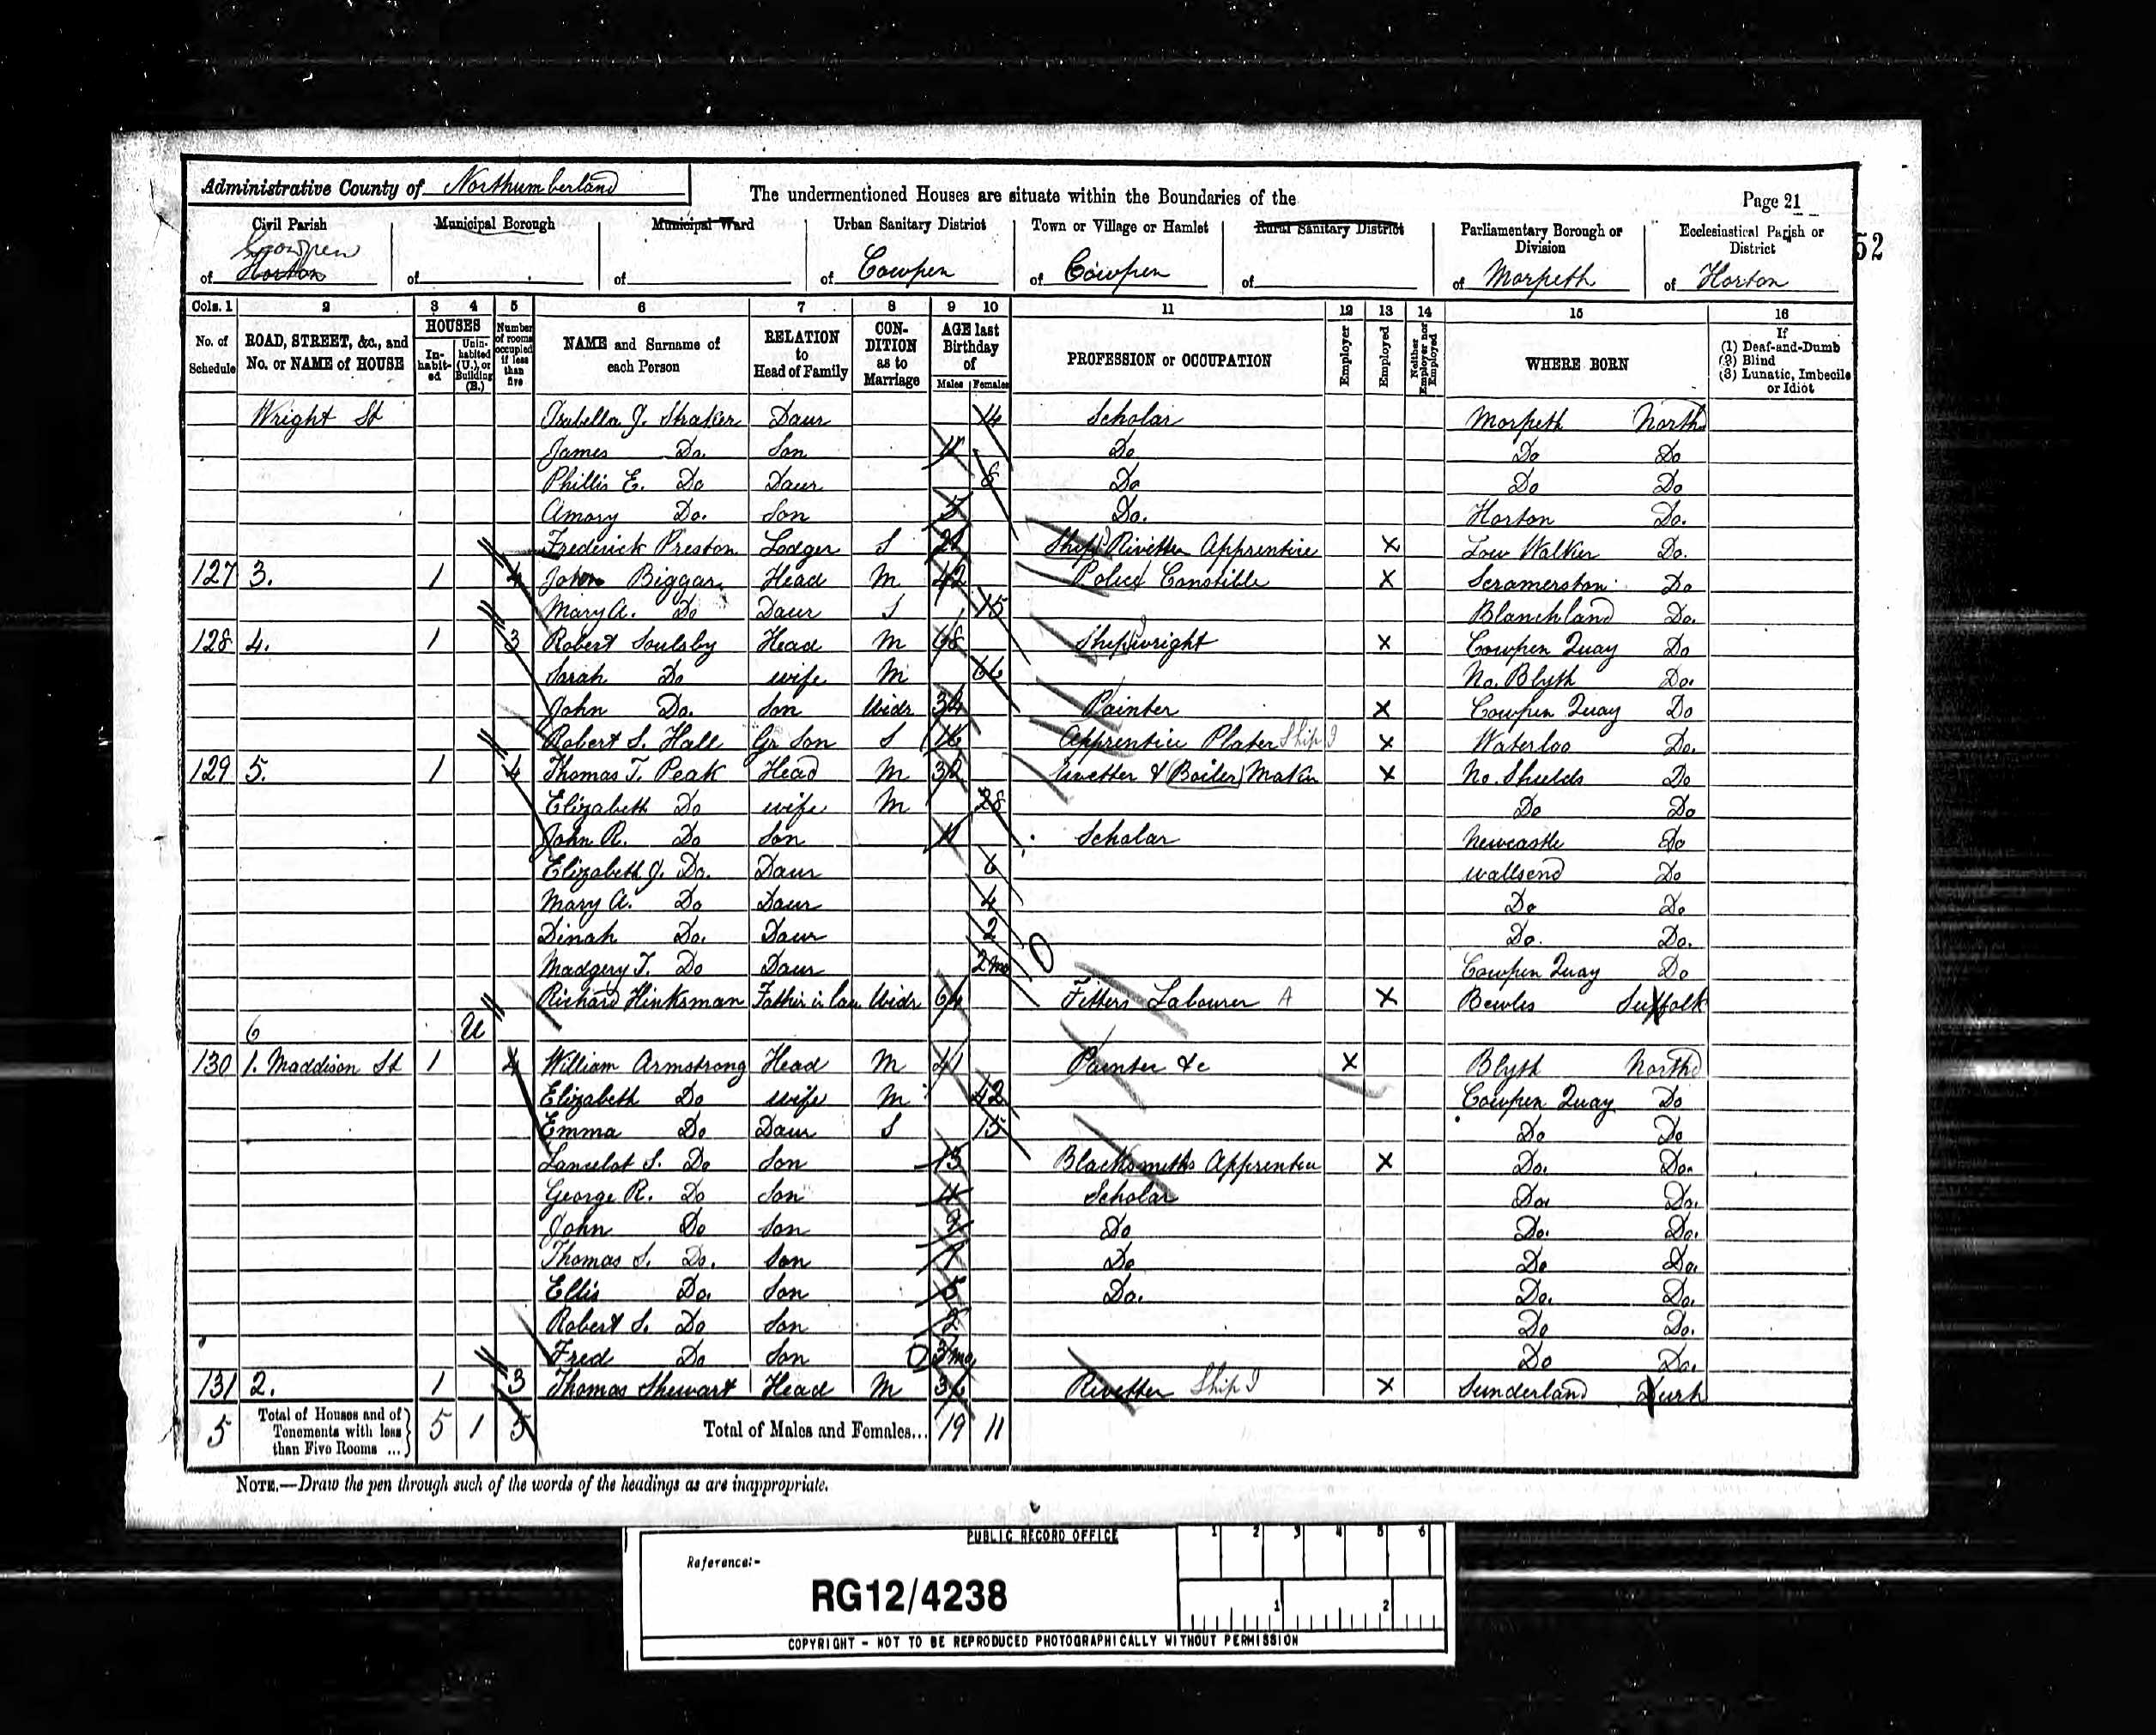 Administrative County of Northumberland
The undermentioned Houses are situate within the Boundaries of the
Page 21
52
Civil Parish of Cowpen Horton
Municipal Borough of
Municipal Ward of
Urban Sanitary District of Cowpen
Town or Village or Hamlet of Cowpen
Rural Sanitary District of
Parliamentary Borough or Division of Morpeth
Ecclesiastical Parish or District of Horton
Cols. 1 2 3 4 5 6 7 8 9 10 11 12 13 14 15 16
No. of Schedule
ROAD, STREET, &c., and No. or NAME of HOUSE
HOUSES
In-habit-ed
Unin-habited (U.), or Building (B.)
Number of rooms occupied if less than five
NAME and Surname of each Person
RELATION to Head of Family
CON-DITION as to Marriage
AGE last Birthday of
Males Females
PROFESSION or OCCUPATION
Employer
Employed
Neither Employer nor Employed
WHERE BORN
If (1) Deaf-and-Dumb (2) Blind (3) Lunatic, Imbecile or Idiot
Wright St Isabella J. Straker Daur 14 Scholar Morpeth North
James Do. Son 11 Do Do Do
Phillis E. Do Daur 8 Do Do Do
Amory Do. Son 5 Do. Horton Do.
Frederick Preston Lodger S 21 Ship Rivetter Apprentice X Low Walker Do.
127 3. 1 4 John Biggar Head M 42 Police Constible X Scramerston Do
Mary A. Do Daur S 15 Blanchland Do.
128 4. 1 3 Robert Soulsby Head M 68 Shipwright X Cowpen Quay Do
Sarah Do wife M 66 No. Blyth Do.
John Do. Son Widr 34 Painter X Cowpen Quay Do
Robert S. Hall Gr Son S 16 Apprentice Plater Ship X Waterloo Do.
129 5. 1 4 Thomas T. Peak Head M 32 Rivetter & Boiler Maker X No. Shields Do
Elizabeth Do wife M 28 Do Do
John R. Do Son 11 Scholar Newcastle Do
Elizabeth J. Do. Daur 6 Wallsend Do
Mary A. Do Daur 4 Do Do
Dinah Do. Daur 2 Do. Do.
Madgery T. Do Daur 2 mo Cowpen Quay Do
Richard Hinksman Father in law Widr 64 Fitters Labourer A X Bewles Suffolk
6 U
130 1. Maddison St 1 4 William Armstrong Head M 41 Painter &c X Blyth North
Elizabeth Do wife M 42 Cowpen Quay Do
Emma Do Daur S 15 Do Do
Lancelot S. Do Son 13 Blacksmiths Apprentice X Do. Do.
George R. Do Son Scholar Do. Do.
John Do Son Do Do. Do.
Thomas S. Do. Son Do Do Do.
Ellis Do. Son 5 Do. Do. Do.
Robert S. Do Son 2 Do Do.
Fred Do Son 3 mo Do Do.
131 2. 1 3 Thomas Stewart Head M Rivetter Ship X Sunderland Durh
5 Total of Houses and of Tenements with less than Five Rooms ... 5 1 5 Total of Males and Females... 19 11
NOTE.—Draw the pen through such of the words of the headings as are inappropriate.
PUBLIC RECORD OFFICE
1 2 3 4 5 6
Reference:-
RG12/4238
1 2
COPYRIGHT - NOT TO BE REPRODUCED PHOTOGRAPHICALLY WITHOUT PERMISSION